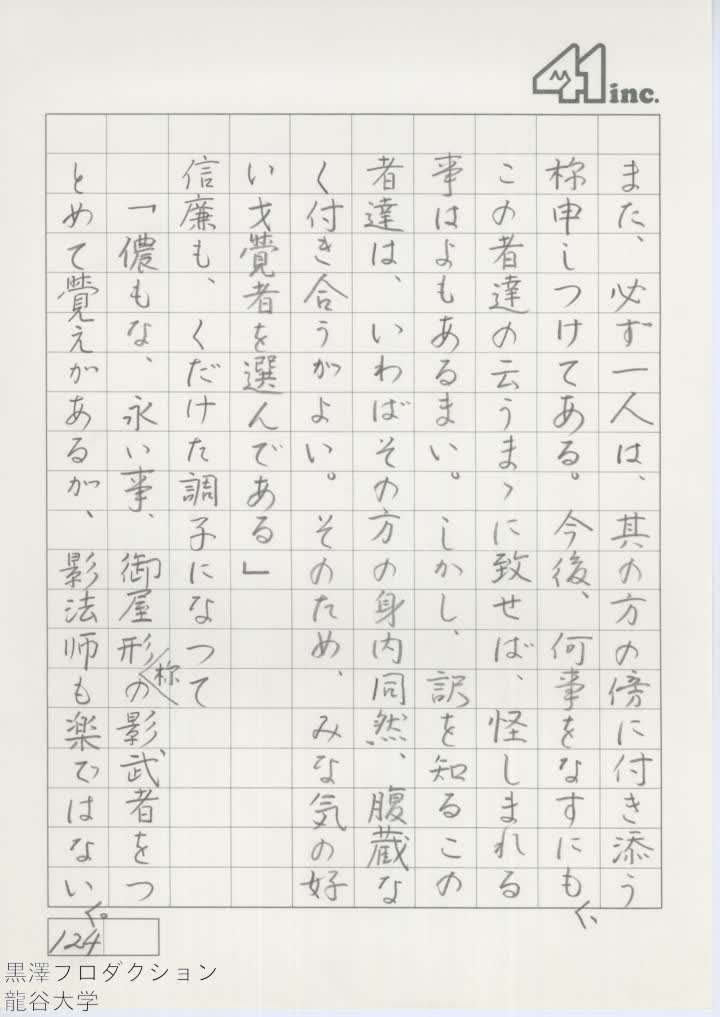 41 inc.
また、必ず一人は、其の方の傍に付き添う
称申しつけてある。今後、何事をなすにも、
この者達の云うまゝに致せば、怪しまれる
事はよもあるまい。しかし、訳を知るこの
者達は、いわばその方の身内同然、腹蔵な
く付き合うがよい。そのため、みな気の好
い才覺者を選んである」
信廉も、くだけた調子になって
「儂もな、永い事、御屋形称の影武者をつ
とめて覺えがあるが、影法師も楽ではない。
124
黒澤プロダクション
龍谷大学